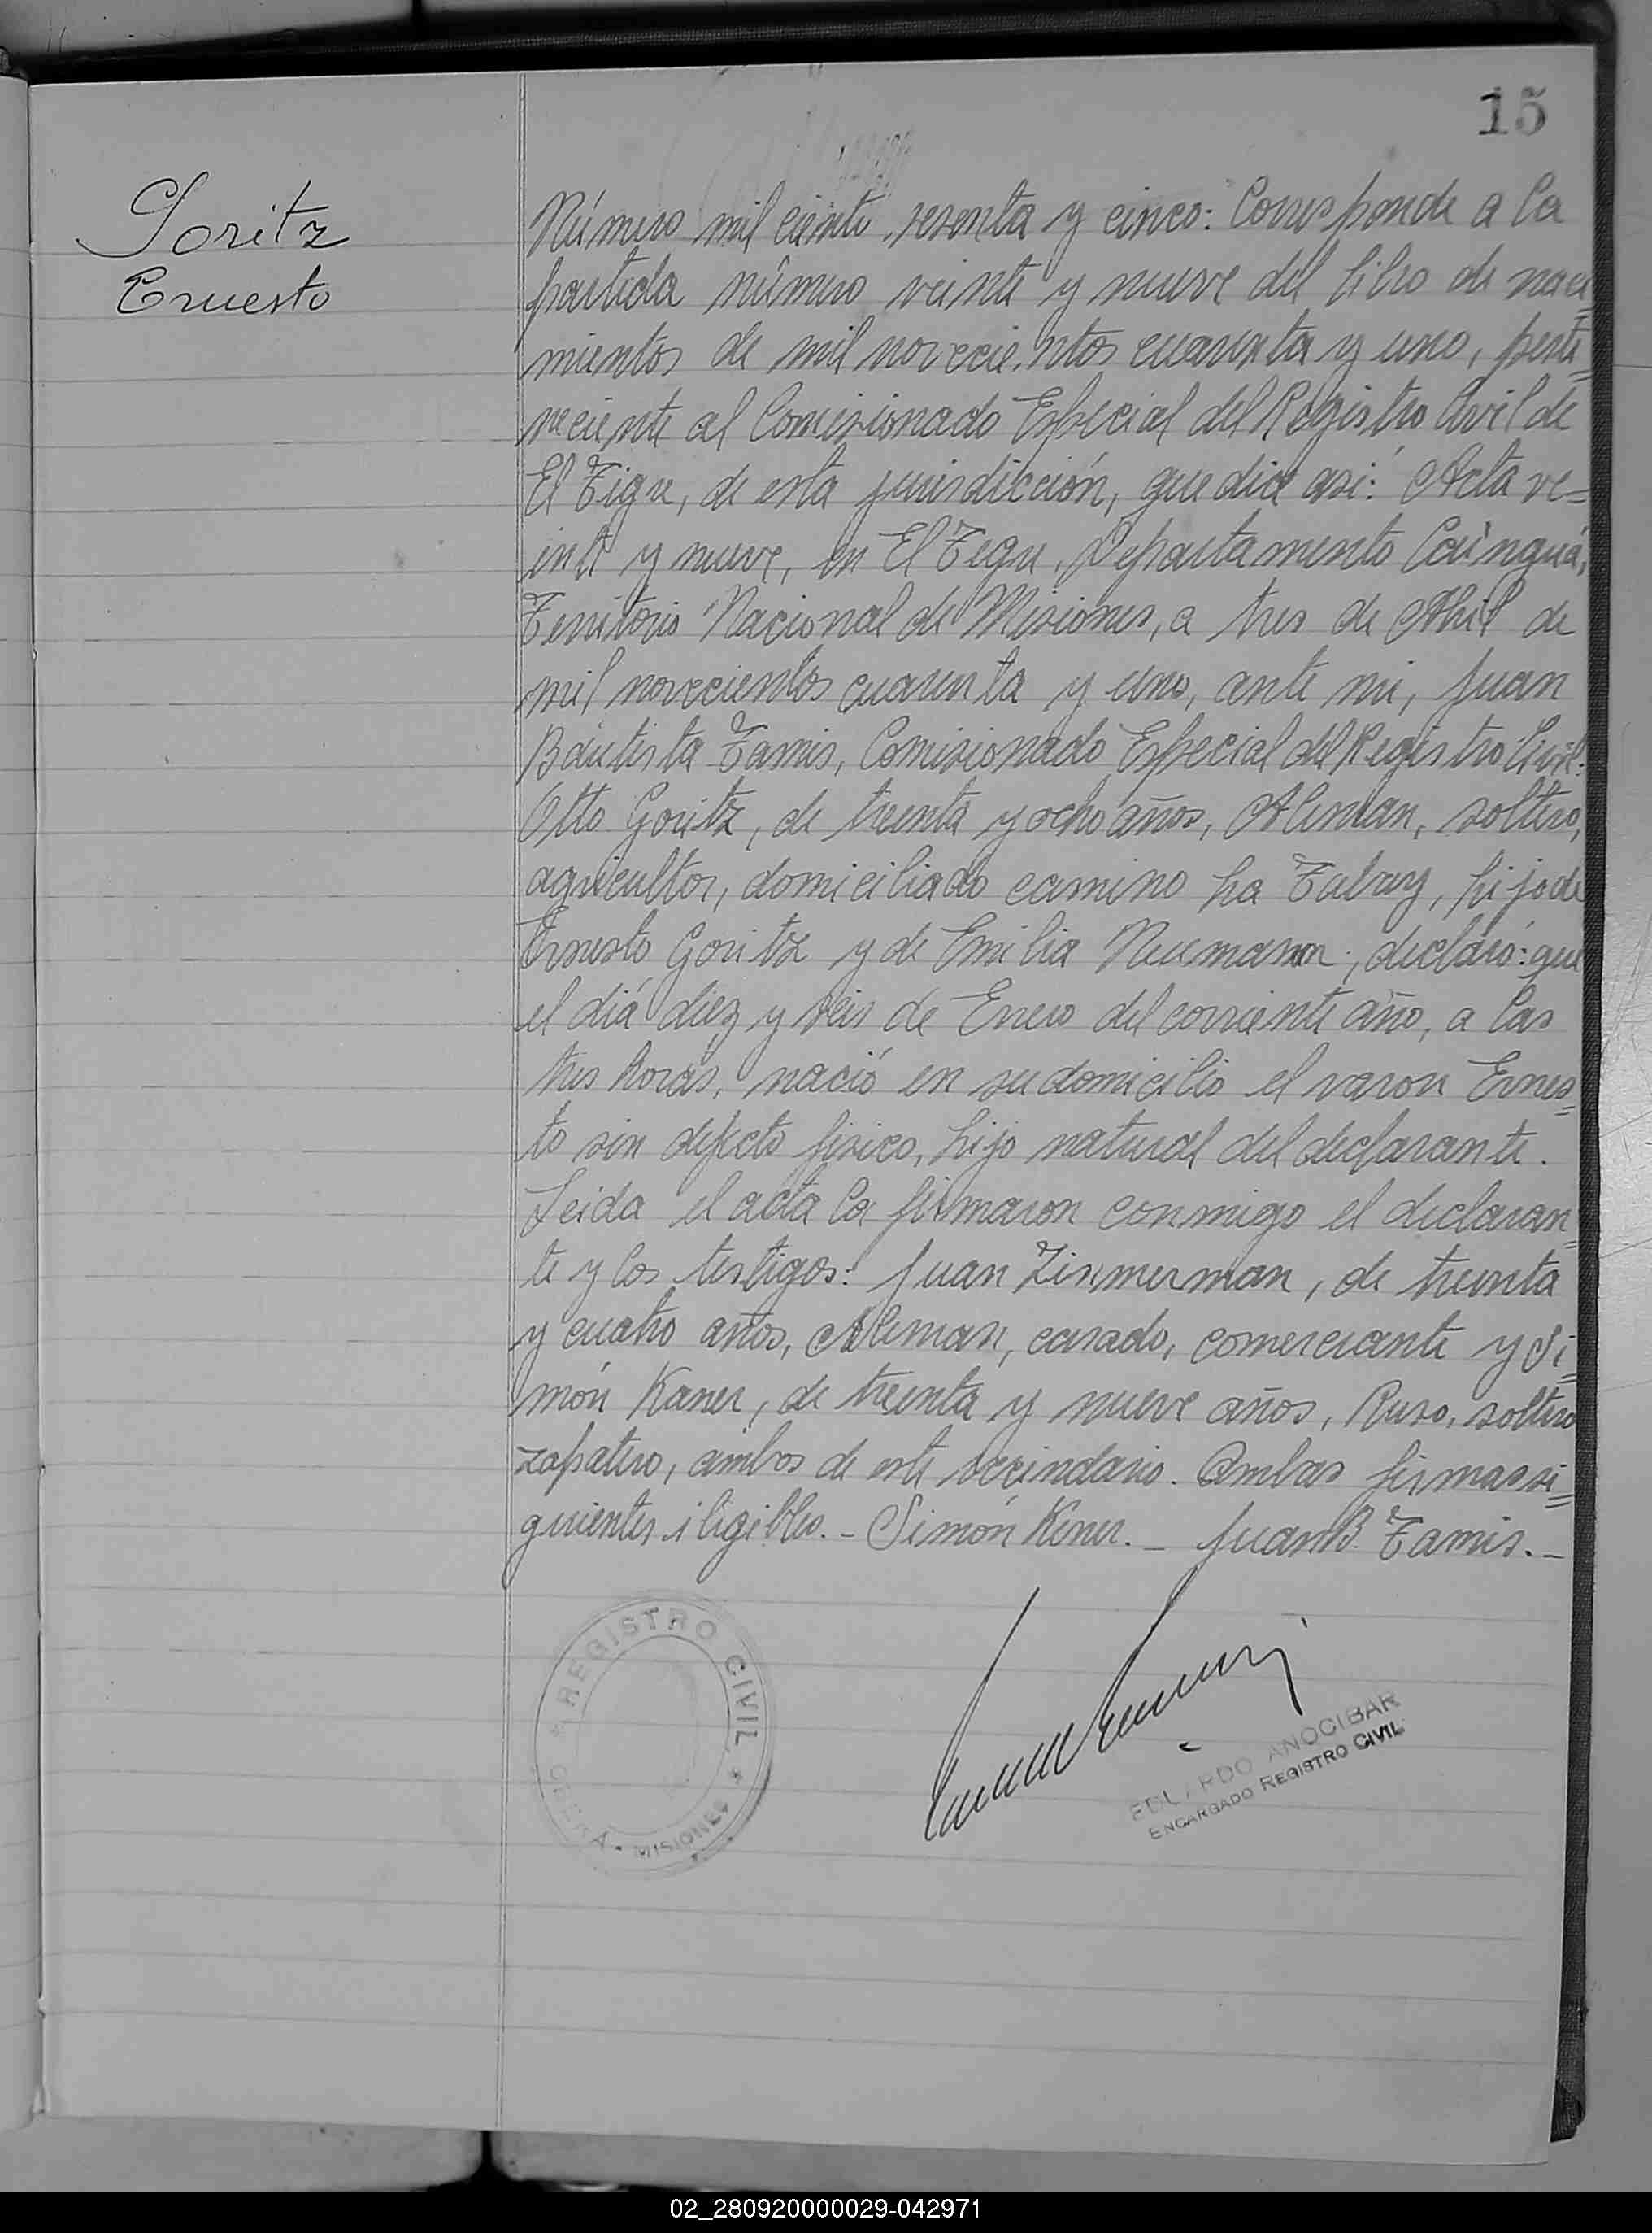 15
Goritz
Ernesto
Número mil ciento sesenta y cinco: Corresponde a la
partida número veinte y nueve del libro de naci=
mientos de mil novecientos cuarenta y uno, perte=
neciente al Comisionado Especial del Registro Civil de
El Tigre, de esta jurisdicción, que dice asi: Acta ve=
inte y nueve, en El Tigre, Departamento Cainguá,
Territorio Nacional de Misiones, a tres de Abril de
mil novecientos cuarenta y uno, ante mi, Juan
Bautista Tamis, Comisionado Especial del Registro Civil:
Otto Goritz, de treinta y ocho años, Aleman, soltero,
agricultor, domiciliado camino ha Tabay, hijo de
Ernesto Goritz y de Emilia Neumann, declaró: que
el diá diez y seis de Enero del corriente año, a las
tres horas, nació en su domicilio el varon Ernes=
to sin defecto fisico, hijo natural del declarante.
Leida el acta la firmaron conmigo el declaran=
te y los testigos: Juan Zinmerman, de treinta
y cuatro años, Aleman, casado, comerciante y Si=
món Kaner, de treinta y nueve años, Ruso, soltero
zapatero, ambos de este vecindario. Ambas firmas si=
guientes iligibles. - Simón Kener. - Juan B. Tamis. -
REGISTRO CIVIL
OBERÁ - MISIONES
EDUARDO ANOCIBAR
ENCARGADO REGISTRO CIVIL
02_280920000029-042971